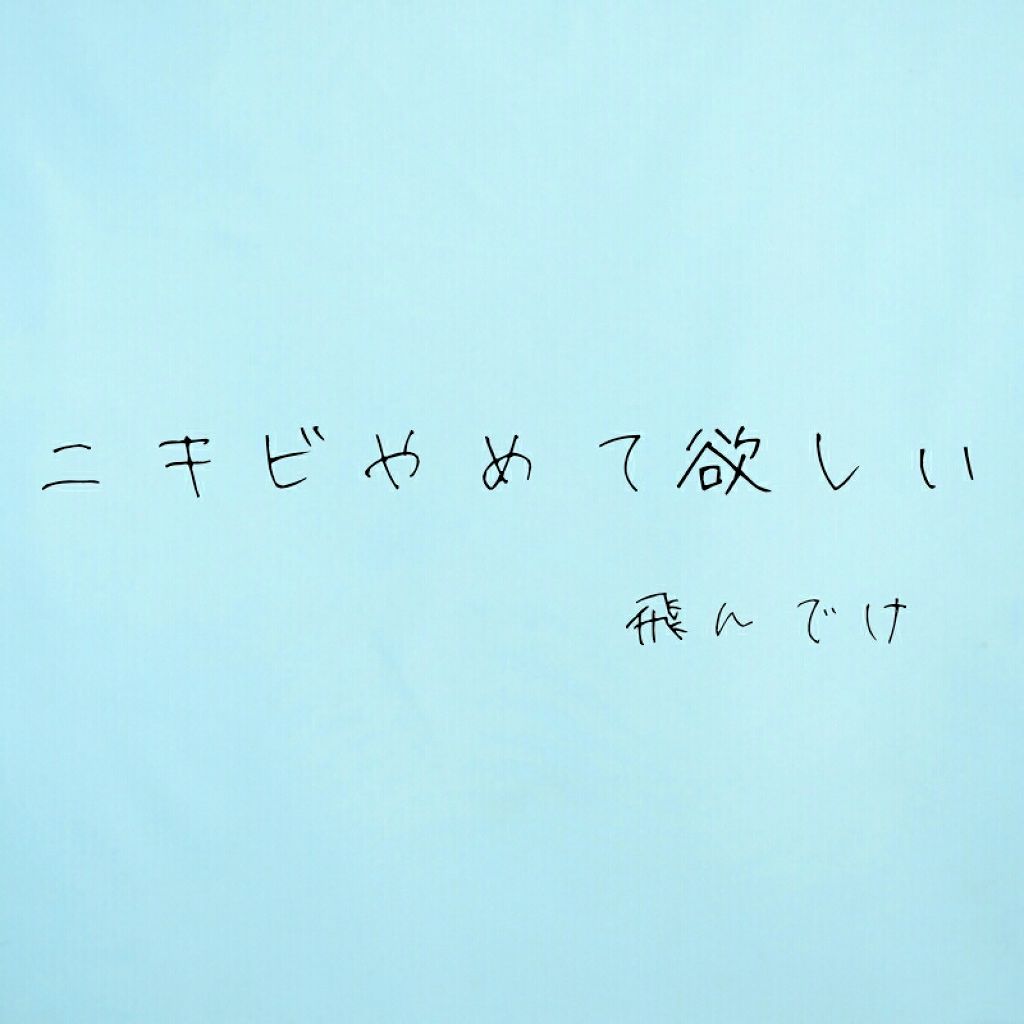 ニキビやめて欲しい
飛んでけ